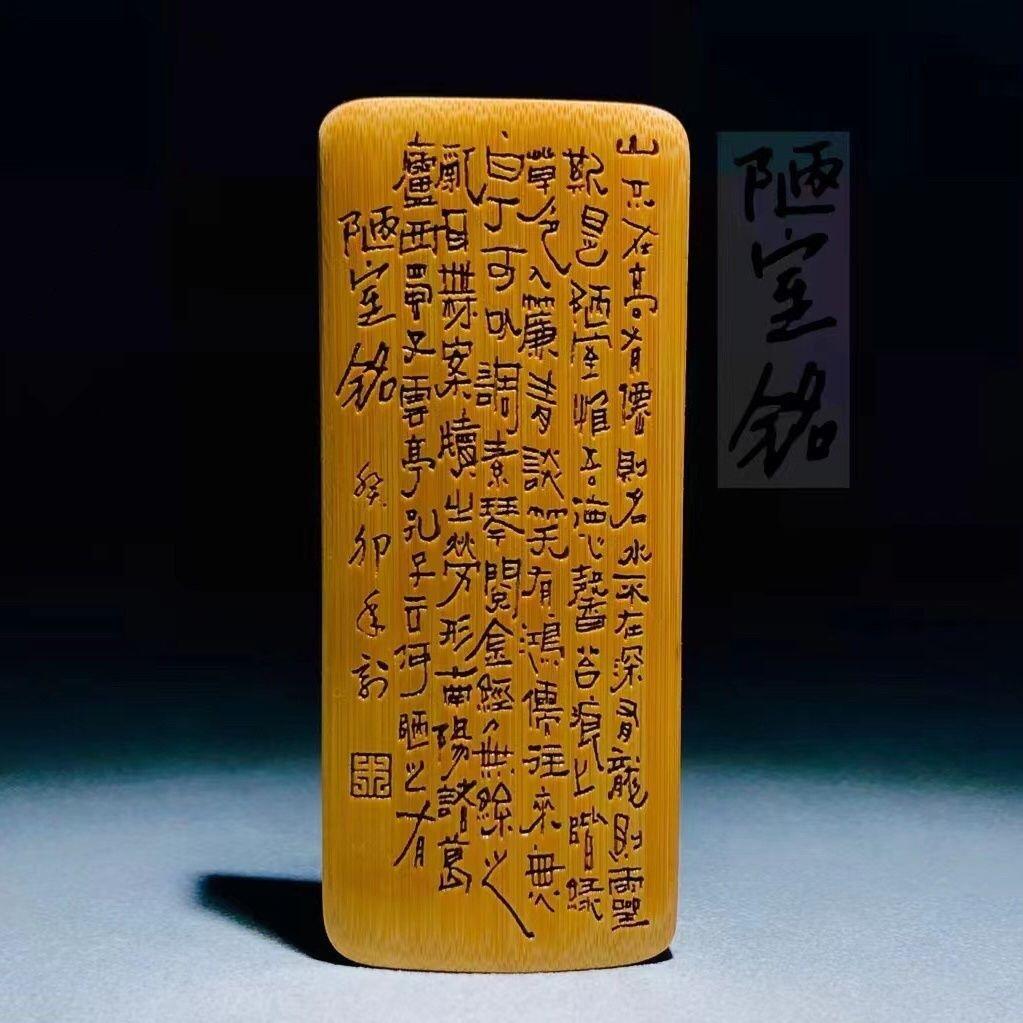 陋室銘
山不在高有僊則名水不在深有龍則靈
斯是陋室惟吾德馨苔痕上階綠
草色入簾青談笑有鴻儒往來無
白丁可以調素琴閱金經無絲之
亂耳無案牘之勞形南陽諸葛
廬西蜀子雲亭孔子云何陋之有
陋室銘 癸卯年刻